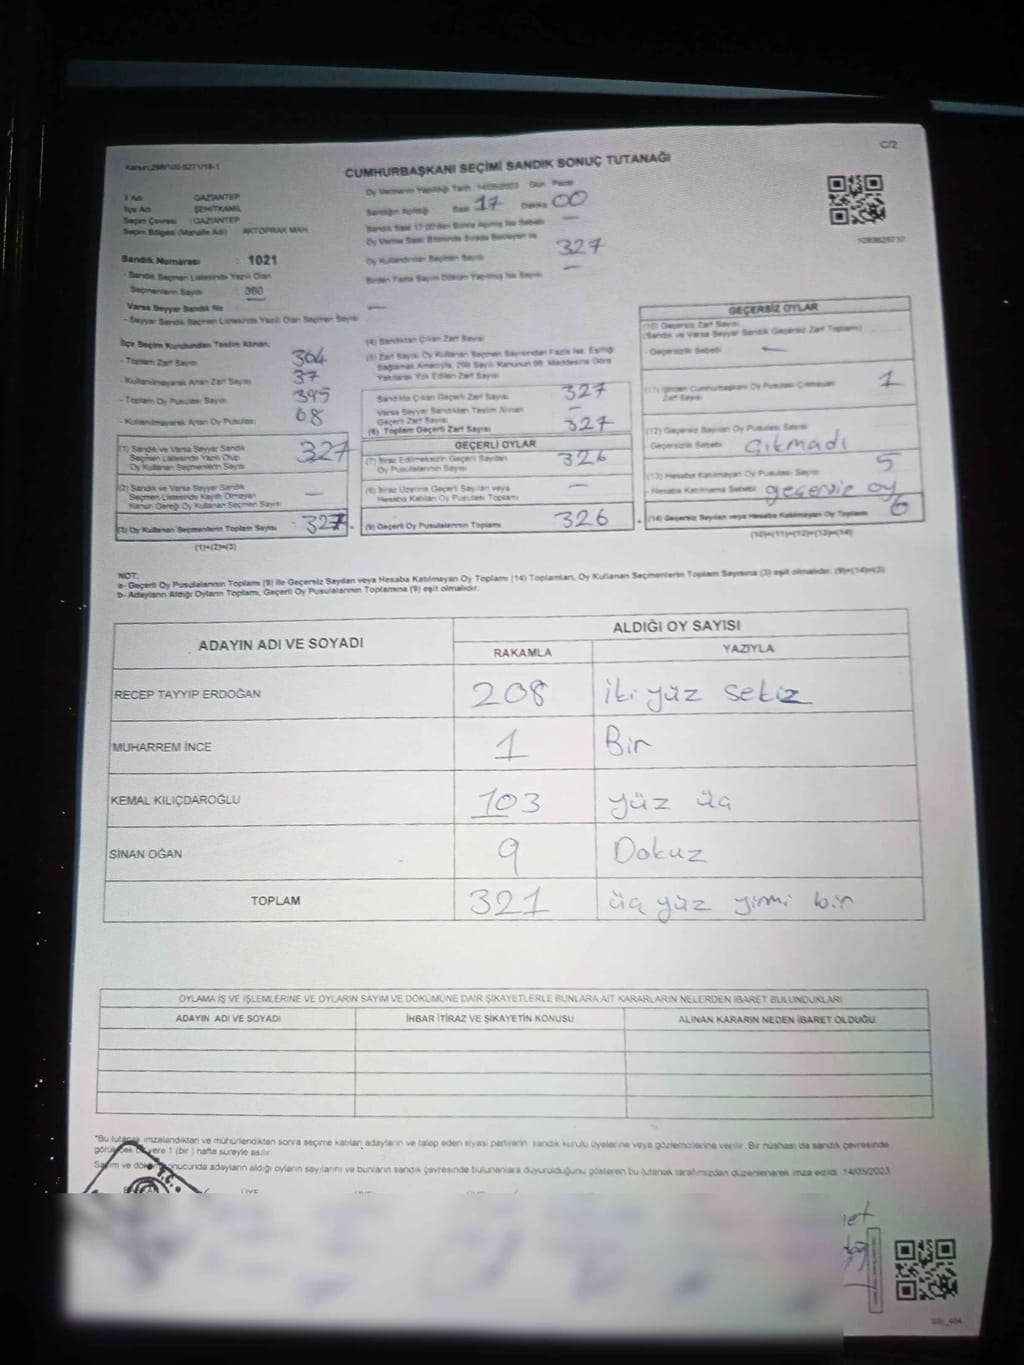 Kanun:298/105-8271/18-1
C/2
CUMHURBAŞKANI SEÇİMİ SANDIK SONUÇ TUTANAĞI
İl Adı GAZİANTEP
İlçe Adı ŞEHİTKAMİL
Seçim Çevresi : GAZİANTEP
Seçim Bölgesi (Mahalle Adı) AKTOPRAK MAH.
Oy Vermenin Yapıldığı Tarih 14/05/2023 Gün Pazar
Sandığın Açıldığı Saat 17 Dakika 00
Sandık Saat 17:00'den Sonra Açılmış İse Sebebi —
Oy Verme Saati Bitiminde Sırada Bekleyen ile
Oy Kullandırılan Seçmen Sayısı 327
Birden Fazla Sayım Döküm Yapılmış İse Sayısı —
Sandık Numarası : 1021
- Sandık Seçmen Listesinde Yazılı Olan
Seçmenlerin Sayısı : 360
Varsa Seyyar Sandık No —
- Seyyar Sandık Seçmen Listesinde Yazılı Olan Seçmen Sayısı
İlçe Seçim Kurulundan Teslim Alınan;
- Toplam Zarf Sayısı 364
- Kullanılmayarak Artan Zarf Sayısı 37
- Toplam Oy Pusulası Sayısı 395
- Kullanılmayarak Artan Oy Pusulası 68
(1) Sandık ve Varsa Seyyar Sandık
Seçmen Listesinde Yazılı Olup
Oy Kullanan Seçmenlerin Sayısı 327
(2) Sandık ve Varsa Seyyar Sandık
Seçmen Listesinde Kayıtlı Olmayan
Kanun Gereği Oy Kullanan Seçmen Sayısı —
(3) Oy Kullanan Seçmenlerin Toplam Sayısı 327 =
(1)+(2)=(3)
(4) Sandıktan Çıkan Zarf Sayısı
(5) Zarf Sayısı Oy Kullanan Seçmen Sayısından Fazla İse, Eşitliği
Sağlamak Amacıyla, 298 Sayılı Kanunun 98. Maddesine Göre
Yakılarak Yok Edilen Zarf Sayısı
Sandıkta Çıkan Geçerli Zarf Sayısı 327
Varsa Seyyar Sandıktan Teslim Alınan
Geçerli Zarf Sayısı —
(6) Toplam Geçerli Zarf Sayısı 327
GEÇERLİ OYLAR
(7) İtiraz Edilmeksizin Geçerli Sayılan
Oy Pusulalarının Sayısı 326
(8) İtiraz Üzerine Geçerli Sayılan veya
Hesaba Katılan Oy Pusulası Toplamı —
(9) Geçerli Oy Pusulalarının Toplamı 326 +
GEÇERSİZ OYLAR
(10) Geçersiz Zarf Sayısı
(Sandık ve Varsa Seyyar Sandık Geçersiz Zarf Toplamı)
- Geçersizlik Sebebi —
(11) İçinden Cumhurbaşkanı Oy Pusulası Çıkmayan
Zarf Sayısı 1
(12) Geçersiz Sayılan Oy Pusulası Sayısı
- Geçersizlik Sebebi çıkmadı
(13) Hesaba Katılmayan Oy Pusulası Sayısı 5
- Hesaba Katılmama Sebebi geçersiz oy
(14) Geçersiz Sayılan veya Hesaba Katılmayan Oy Toplamı 6
(10)+(11)+(12)+(13)=(14)
NOT:
a- Geçerli Oy Pusulalarının Toplamı (9) ile Geçersiz Sayılan veya Hesaba Katılmayan Oy Toplamı (14) Toplamları, Oy Kullanan Seçmenlerin Toplam Sayısına (3) eşit olmalıdır. (9)+(14)=(3)
b- Adayların Aldığı Oyların Toplamı, Geçerli Oy Pusulalarının Toplamına (9) eşit olmalıdır.
ADAYIN ADI VE SOYADI ALDIĞI OY SAYISI
RAKAMLA YAZIYLA
RECEP TAYYİP ERDOĞAN 208 iki yüz sekiz
MUHARREM İNCE 1 Bir
KEMAL KILIÇDAROĞLU 103 yüz üç
SİNAN OĞAN 9 Dokuz
TOPLAM 321 üç yüz yirmi bir
OYLAMA İŞ VE İŞLEMLERİNE VE OYLARIN SAYIM VE DÖKÜMÜNE DAİR ŞİKAYETLERLE BUNLARA AİT KARARLARIN NELERDEN İBARET BULUNDUKLARI
ADAYIN ADI VE SOYADI İHBAR İTİRAZ VE ŞİKAYETİN KONUSU ALINAN KARARIN NEDEN İBARET OLDUĞU
*Bu tutanak imzalandıktan ve mühürlendikten sonra seçime katılan adayların ve talep eden siyasi partilerin sandık kurulu üyelerine veya gözlemcilerine verilir. Bir nüshası da sandık çevresinde
görülecek bir yere 1 (bir ) hafta süreyle asılır.
Sayım ve döküm sonucunda adayların aldığı oyların sayılarını ve bunların sandık çevresinde bulunanlara duyurulduğunu gösteren bu tutanak tarafımızdan düzenlenerek imza edildi. 14/05/2023
T.C.
ÜYE